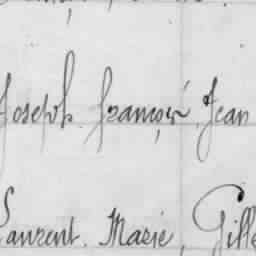 Joseph. françois, Jean
Laurent. Marie, Gille